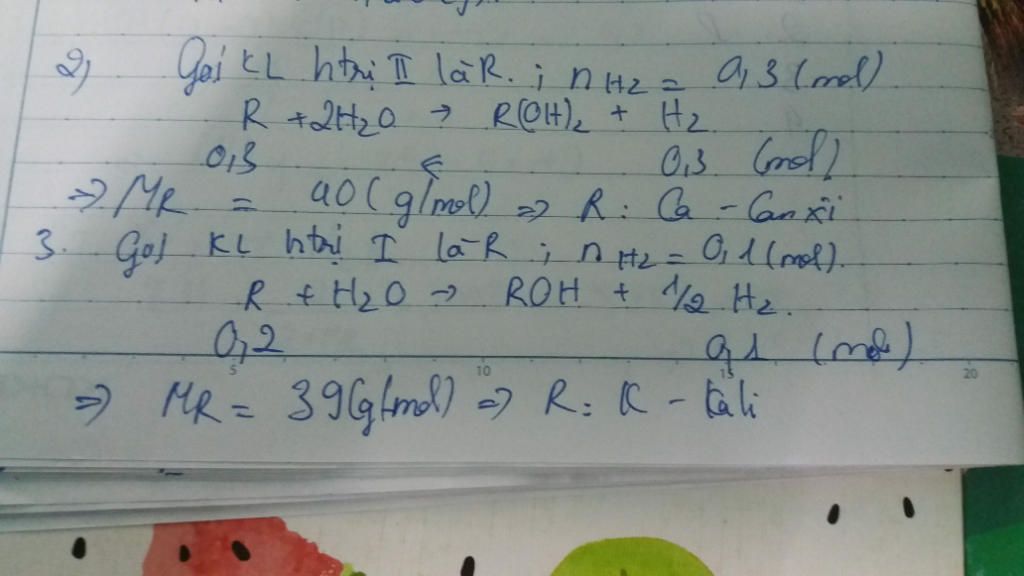 2) Gọi KL htrị II là R. ; nH2 = 0,3 (mol)
R + 2H2O → R(OH)2 + H2
0,3 ← 0,3 (mol)
=> MR = 40 (g/mol) => R : Ca - Canxi
3. Gọi KL htrị I là R ; nH2 = 0,1 (mol).
R + H2O → ROH + 1/2 H2.
0,2 0,1 (mol)
5 10 15 20
=> MR = 39 (g/mol) => R : K - Kali